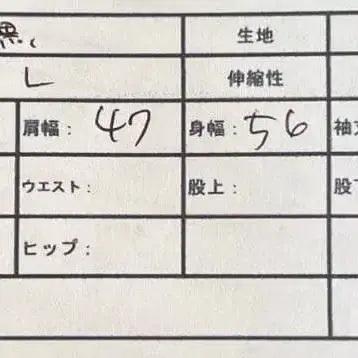 黒、 生地
L 伸縮性
肩幅： 47 身幅： 56 袖
ウエスト： 股上： 股
ヒップ：